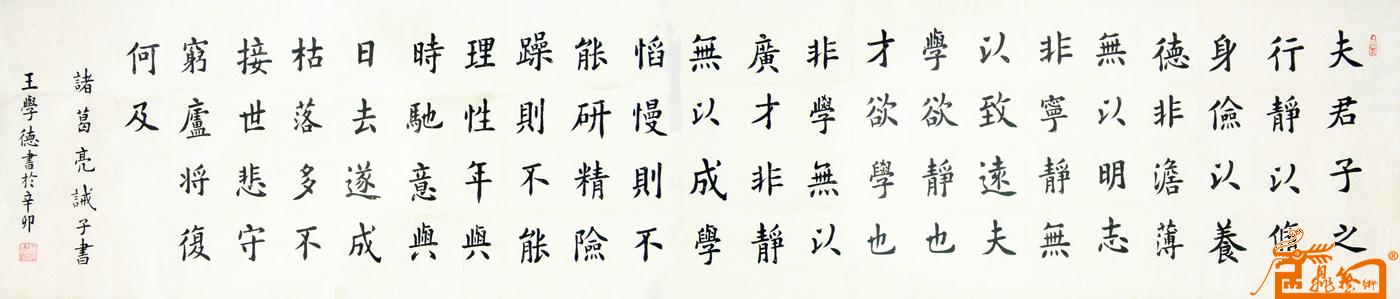 夫君子之
行靜以脩
身儉以養
德非澹薄
無以明志
非寧靜無
以致遠夫
學欲靜也
才欲學也
非學無以
廣才非靜
無以成學
慆慢則不
能研精險
躁則不能
理性年與
時馳意與
日去遂成
枯落多不
接世悲守
窮廬将復
何及
諸葛亮誡子書
王學德書於辛卯